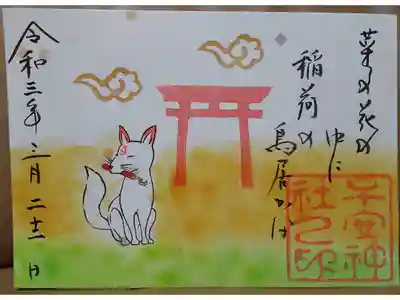 菜の花の
中に
稲荷の
鳥居かな
子安神
社之印
令和三年三月 日